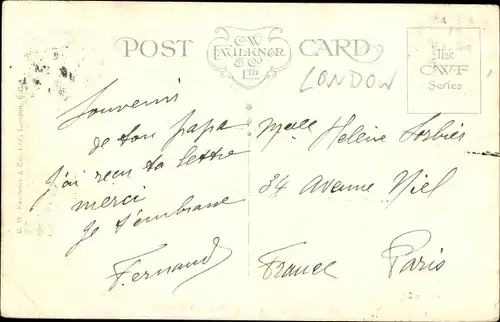 POST CARD
C.W.
FAULKNER
& Co
LTD
LONDON
The
C.W.F
Series
C. W. Faulkner & Co. Ltd., London, E.C.
Souvenir
de ton papa
j'ai reçu ta lettre
merci
Je t'embrasse
Fernand
Melle Helène
34 Avenue Niel
France Paris